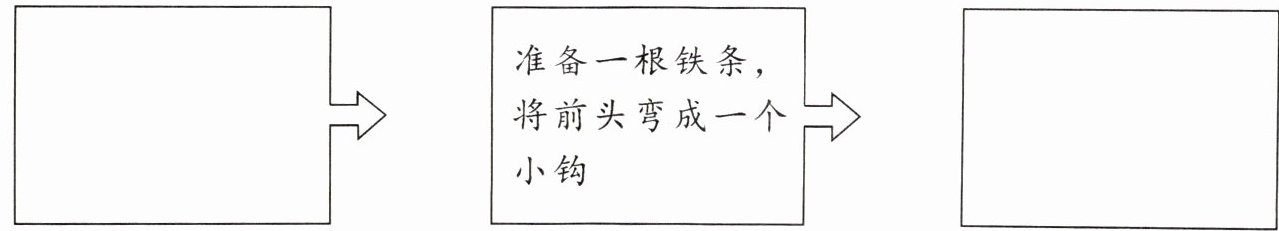 准备一根铁条，
将前头弯成一个
小钩